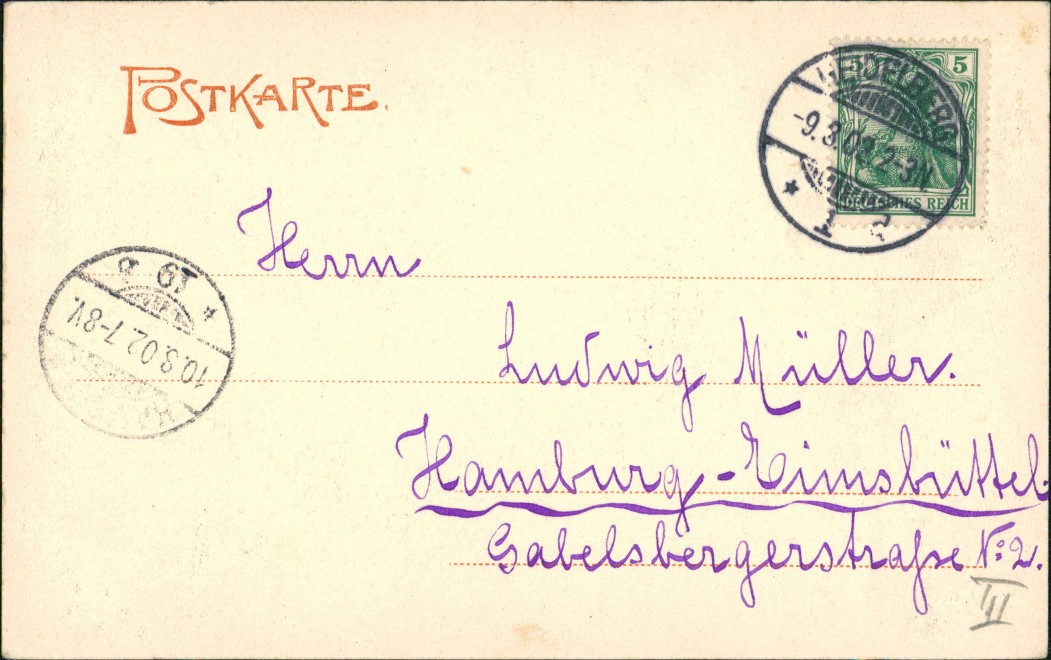 POSTKARTE.
5 5
HEIDELBERG
-9.3.02.2-3N.
* 1 c
DEUTSCHES REICH
Herrn
* 19 b
10.3.02.7-8V.
Ludwig Müller.
Hamburg-Eimsbüttel.
Gabelsbergerstraße No 2.
III